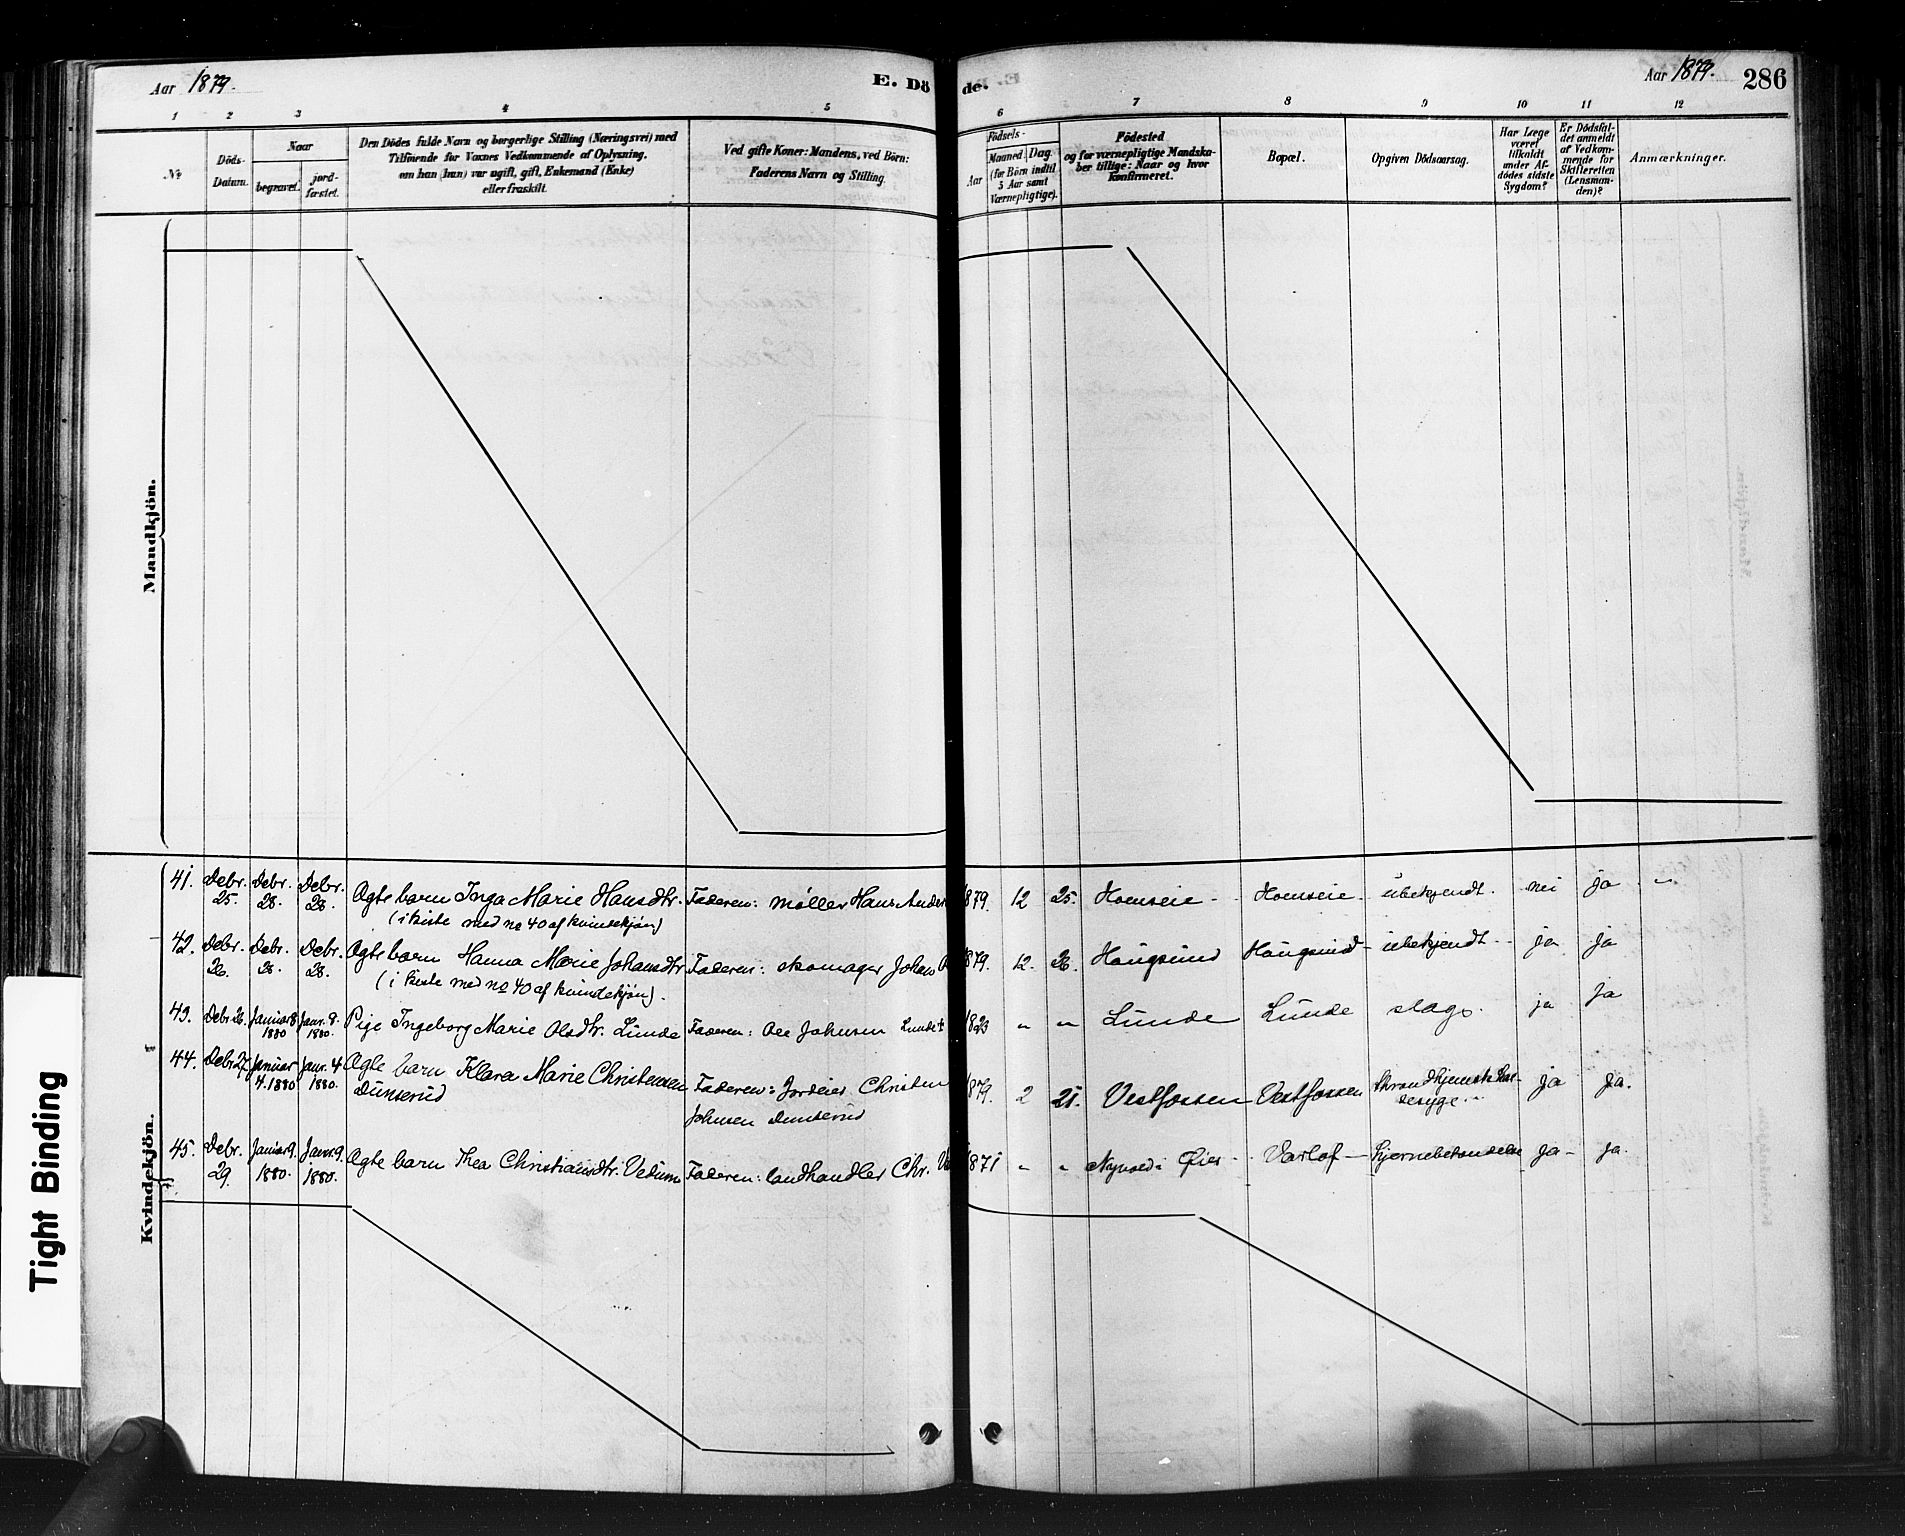 Aar 1879.
E. Dö
de.
Aar 1879.
286
1 2 3 4 5
6 7 8 9 10 11 12
No
Döds-
Datum.
Naar
begravet.
jord-
fæstet.
Den Dödes fulde Navn og borgerlige Stilling (Næringsvei) med
Tilföiende for Voxnes Vedkommende af Oplysning,
om han (hun) var ugift, gift, Enkemand (Enke)
eller fraskilt.
Ved gifte Koner: Mandens, ved Börn:
Faderens Navn og Stilling.
Födsels-
Aar
Maaned. Dag.
(for Börn indtil
5 Aar samt
Værnepligtige).
Födested
og for værnepligtige Mandska-
ber tillige: Naar og hvor
konfirmeret.
Bopæl.
Opgiven Dödsaarsag.
Har Læge
været
tilkaldt
under Af-
dödes sidste
Sygdom?
Er Dödsfal-
det anmeldt
af Vedkom-
mende for
Skifteretten
(Lensman-
den)?
Anmærkninger.
Mandkjön.
Kvindekjön.
41. Debr. 25. Debr. 28. Debr. 28. Ægte barn Inga Marie Hansdtr. Faderen: møller Hans Ander 1879. 12 25. Hoenseie Hoenseie ubekjendt. nei ja
(i kiste med no 40 af kvindekjøn)
42. Debr. 26. Debr. 28. Debr. 28. Ægte barn Hanna Marie Johansdtr Faderen: skomager Johan 1879. 12. 26. Hougsund Hougsund ubekjendt ja ja
(i kiste med no 40 af kvindekjøn).
43. Debr 26. Januar 8 1880 Janr. 8. 1880. Pige Ingeborg Marie Olsdtr. Lunde Faderen: Ole Johnsen Lunde † 1823 " " Lunde Lunde slag. ja ja
44. Debr 27. Januar 4. 1880 Janr. 4 1880. Ægte barn Klara Marie Christensen
Dunserud
Faderen: Gordeier Christen
Johnsen Dunserud
1879. 2 21. Vestfossen Vestfossen ja ja.
45. Debr. 29. Januar 9. 1880. Janr 9. 1880. Ægte barn Thea Christiansdtr. Vedum Faderen: landhandler Chr. 1871 " " Øier Varlof Hjernebetændelse ja ja.
Tight Binding